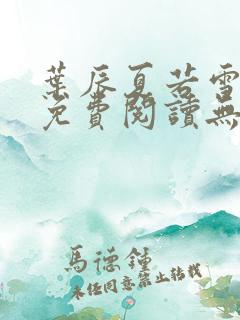 葉辰夏若雪
免費閱讀無
馬德鍾
未經同意禁止轉載